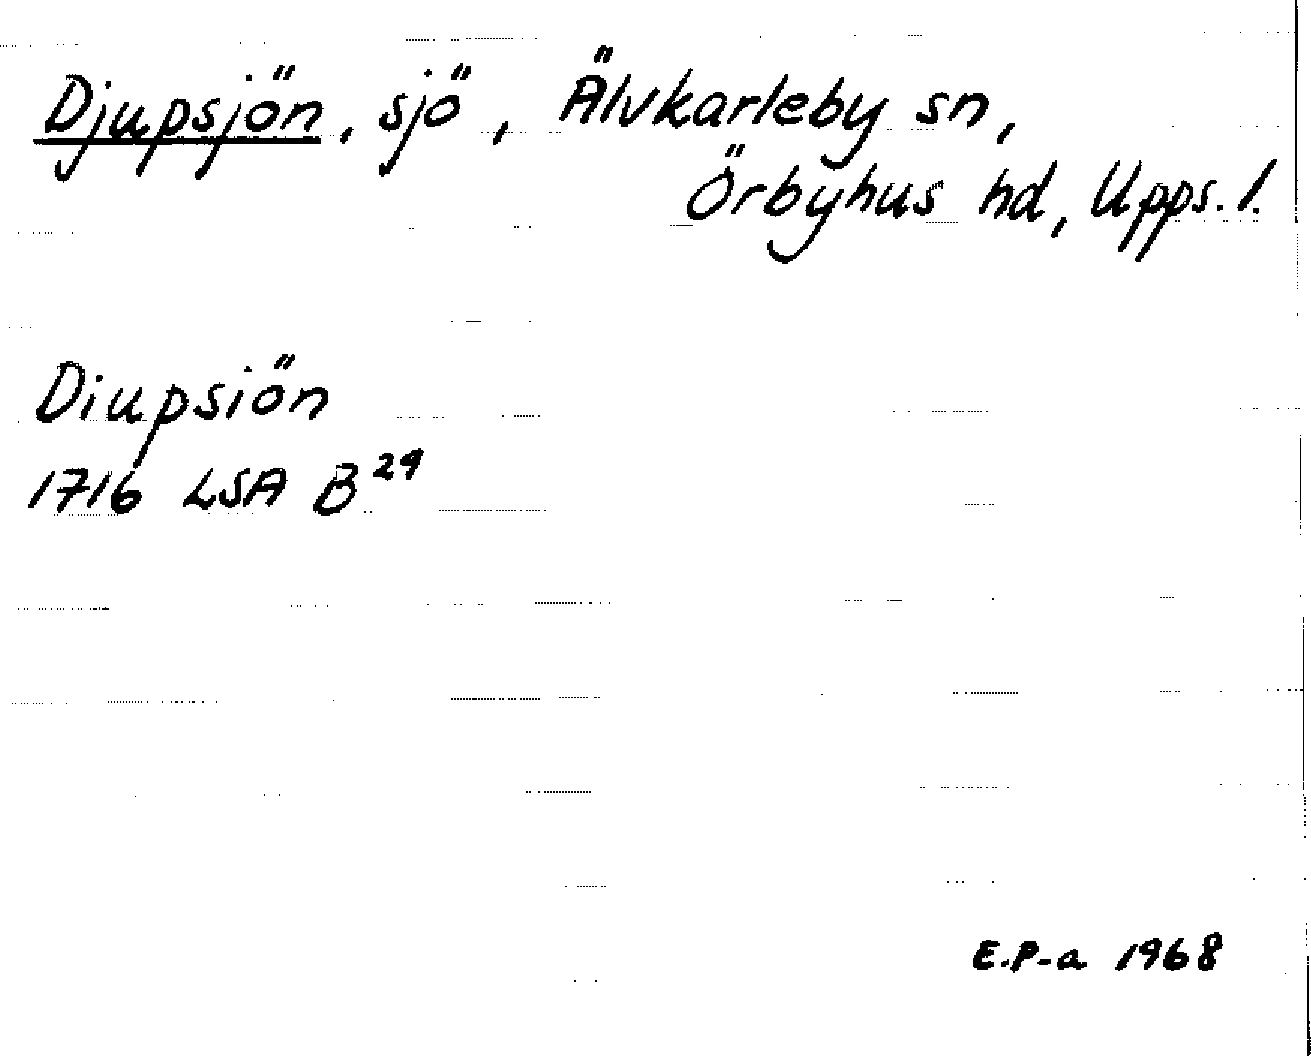 Djupsjön, sjö, Älvkarleby sn,
Örbyhus hd, Upps. l.
Diupsiön
1716 LSA B²⁹
E.P-a 1968